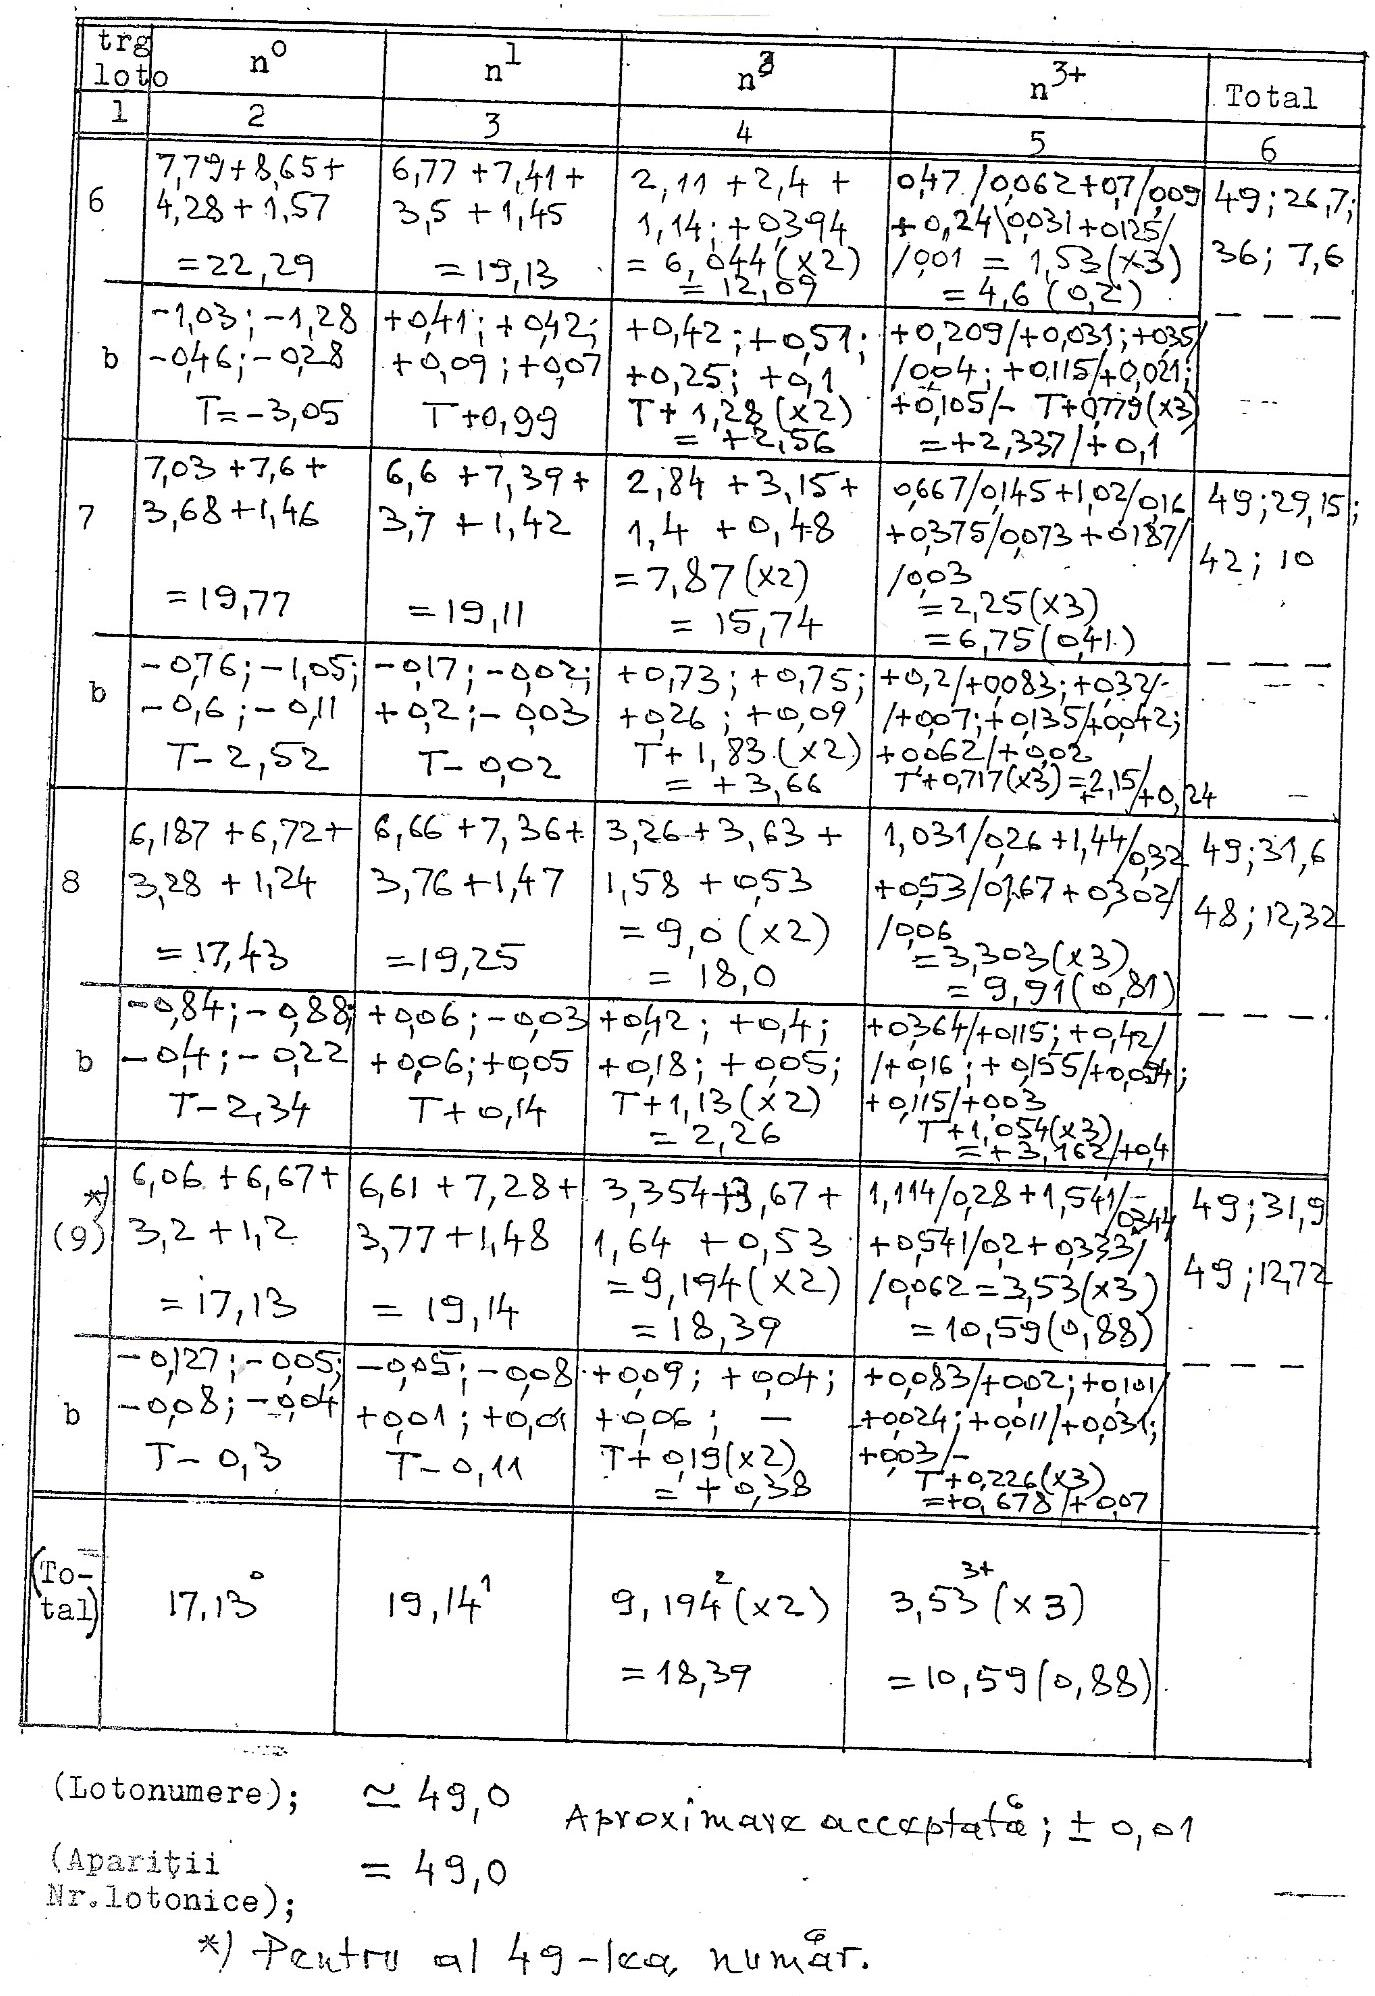 trg loto n⁰ n¹ n² n³⁺ Total
1 2 3 4 5 6
6
7,79+8,65+
4,28+1,57
=22,29
6,77+7,41+
3,5+1,45
=19,13
2,11+2,4+
1,14;+0,394
=6,044(x2)
=12,09
0,47/0,062+0,7/0,09
+0,24\0,031+0,125/
/0,01=1,53(x3)
=4,6(0,2)
49;26,7;
36;7,6
b
-1,03;-1,28
-0,46;-0,28
T=-3,05
+0,41;+0,42;
+0,09;+0,07
T+0,99
+0,42;+0,51;
+0,25;+0,1
T+1,28(x2)
=+2,56
+0,209/+0,031;+0,35/
/0,04;+0,115/+0,021;
+0,105/- T+0,779(x3)
=+2,337/+0,1
_ _ _
7
7,03+7,6+
3,68+1,46
=19,77
6,6+7,39+
3,7+1,42
=19,11
2,84+3,15+
1,4+0,48
=7,87(x2)
=15,74
0,667/0,145+1,02/0,16
+0,375/0,073+0,187/
/0,03
=2,25(x3)
=6,75(0,41)
49;29,15;
42;10
b
-0,76;-1,05;
-0,6;-0,11
T-2,52
-0,17;-0,02;
+0,2;-0,03
T-0,02
+0,73;+0,75;
+0,26;+0,09
T+1,83(x2)
=+3,66
+0,2/+0,083;+0,32/-
/+0,07;+0,135/+0,042;
+0,062/+0,02
T+0,717(x3)=+2,15/+0,24
_ _ _
8
6,187+6,72+
3,28+1,24
=17,43
6,66+7,36+
3,76+1,47
=19,25
3,26+3,63+
1,58+0,53
=9,0(x2)
=18,0
1,031/0,26+1,44/0,32
+0,53/0,167+0,302/
/0,06
=3,303(x3)
=9,91(0,81)
49;31,6
48;12,32
b
-0,84;-0,88;
-0,4;-0,22
T-2,34
+0,06;-0,03
+0,06;+0,05
T+0,14
+0,42;+0,4;
+0,18;+0,05;
T+1,13(x2)
=2,26
+0,364/+0,115;+0,42/
/+0,16;+0,155/+0,094;
+0,115/+0,03
T+1,054(x3)
=+3,162/+0,4
_ _ _
*)
(9)
6,06+6,67+
3,2+1,2
=17,13
6,61+7,28+
3,77+1,48
=19,14
3,354+3,67+
1,64+0,53
=9,194(x2)
=18,39
1,114/0,28+1,541/-
/0,344
+0,541/0,2+0,333/
/0,062=3,53(x3)
=10,59(0,88)
49;31,9
49;12,72
b
-0,127;-0,05;
-0,08;-0,04
T-0,3
-0,05;-0,08
+0,01;+0,01
T-0,11
+0,09;+0,04;
+0,06; -
T+0,19(x2)
=+0,38
+0,083/+0,02;+0,101/
+0,024;+0,011/+0,031;
+0,03/-
T+0,226(x3)
=+0,678/+0,07
_ _ _
(To-
tal)
17,13⁰
19,14¹
9,194²(x2)
=18,39
3,53³⁺(x3)
=10,59(0,88)
(Lotonumere); ≃ 49,0 Aproximare acceptată; ± 0,01
(Apariții = 49,0
Nr.lotonice);
*) Pentru al 49-lea număr.